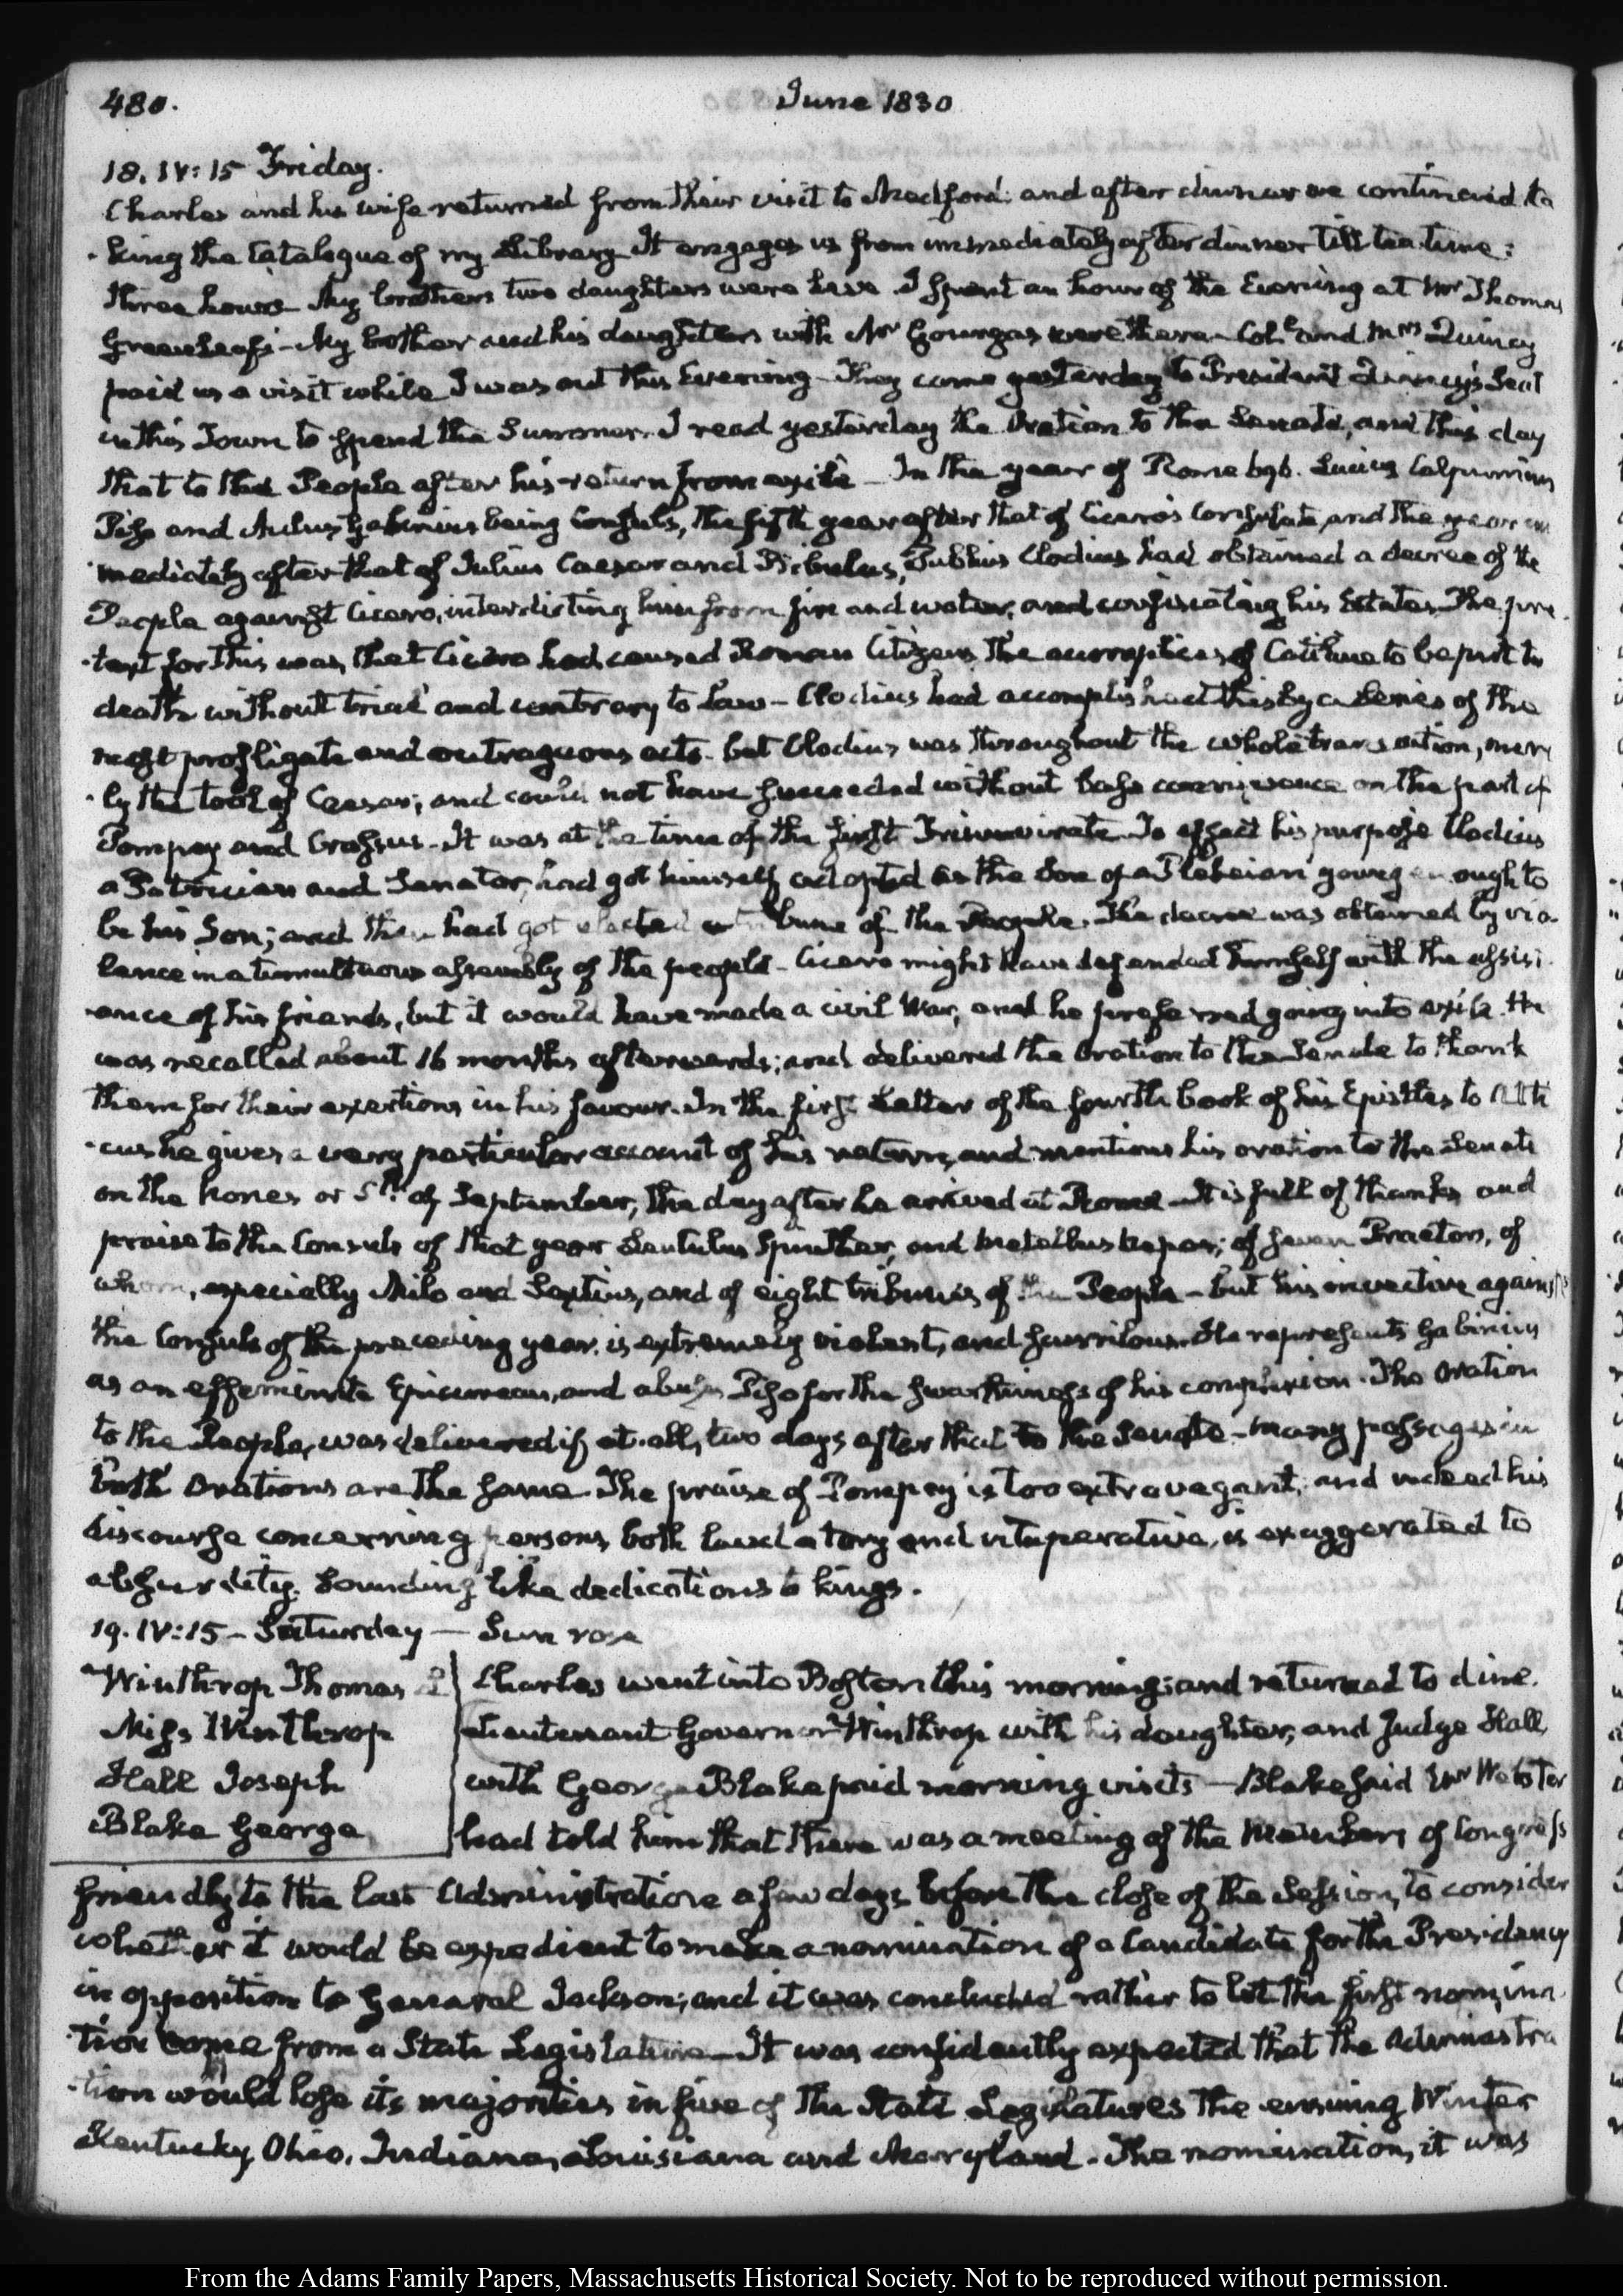 480. June 1830
18. IV:15 Friday.
Charles and his wife returned from their visit to Medford: and after dinner we continued ta
-king the Catalogue of my Library. It engages us from immediately after dinner till tea time:
three hours. My brothers two daughters were here. I spent an hour of the Evening at Mr Thomas
Greenleaf's - My brother and his daughters with Mr Gourgas were there - Coll. and Mrs Quincy
paid us a visit while I was out this Evening - They came yesterday to President Quincy's Seat
in this Town to spend the Summer. I read yesterday the Oration to the Senate, and this day
that to the People after his return from exile - In the year of Rome 696. Lucius Calpurnius
Piso and Aulus Gabinius being Consuls, the fifth year after that of Cicero's Consulate, and the year im
-mediately after that of Julius Caesar and Bibulus, Publius Clodius had obtained a decree of the
People against Cicero, interdicting him from fire and water, and confiscating his Estates. The pre
-text for this was, that Cicero had caused Roman Citizens, the accomplices of Catiline to be put to
death without trial and contrary to Law - Clodius had accomplished this by a series of the
most profligate and outrageous acts. but Clodius was throughout the whole transaction, mere
-ly the tool of Caesar; and could not have succeeded without base connivance on the part of
Pompey and Crassus - It was at the time of the first Triumvirate. To effect his purpose Clodius
a Patrician and Senator, had got himself adopted as the Son of a Plebeian young enough to
be his Son; and then had got elected a tribune of the People. The decree was obtained by vio-
lence in a tumultuous assembly of the people - Cicero might have defended himself with the assist
-ance of his friends, but it would have made a civil War, and he preferred going into exile. He
was recalled about 16 months afterwards; and delivered the Oration to the Senate to thank
them for their exertions in his favour. In the first Letter of the fourth book of his Epistles to Atti
-cus he gives a very particular account of his return, and mentions his oration to the Senate
on the Nones or 5th of September, the day after he arrived at Rome - It is full of thanks and
praise to the Consuls of that year Lentulus Spinther, and Metellus Nepos; of seven Praetors, of
whom, especially Milo and Sextius, and of eight tribunes of the People - but his invective against
the Consuls of the preceding year, is extremely violent, and scurrilous. He represents Gabinius
as an effeminate Epicurean, and abuses Piso for the swarthiness of his complexion. The Oration
to the People, was delivered if at all, two days after that to the Senate - many passages in
both Orations are the same. The praise of Pompey is too extravagant, and indeed his
discourse concerning persons, both laudatory and vituperative, is exaggerated to
absurdity. Sounding like dedications to kings.
19. IV:15 - Saturday - Sun rose
Winthrop Thomas L
Miss Winthrop
Hall Joseph
Blake George
Charles went into Boston this morning; and returned to dine.
Lieutenant Governor Winthrop with his daughter, and Judge Hall,
with George Blake paid morning visits - Blake said Mr Webster
had told him that there was a meeting of the Members of Congress
friendly to the last Administration a few days before the close of the Session, to consider
whether it would be expedient to make a nomination of a Candidate for the Presidency
in opposition to General Jackson; and it was concluded rather to let the first nomina
-tion come from a State Legislature - It was confidently expected that the Administra
-tion would lose its majorities in five of the State Legislatures the ensuing Winter
Kentucky, Ohio, Indiana, Louisiana and Maryland. The nomination, it was
From the Adams Family Papers, Massachusetts Historical Society. Not to be reproduced without permission.